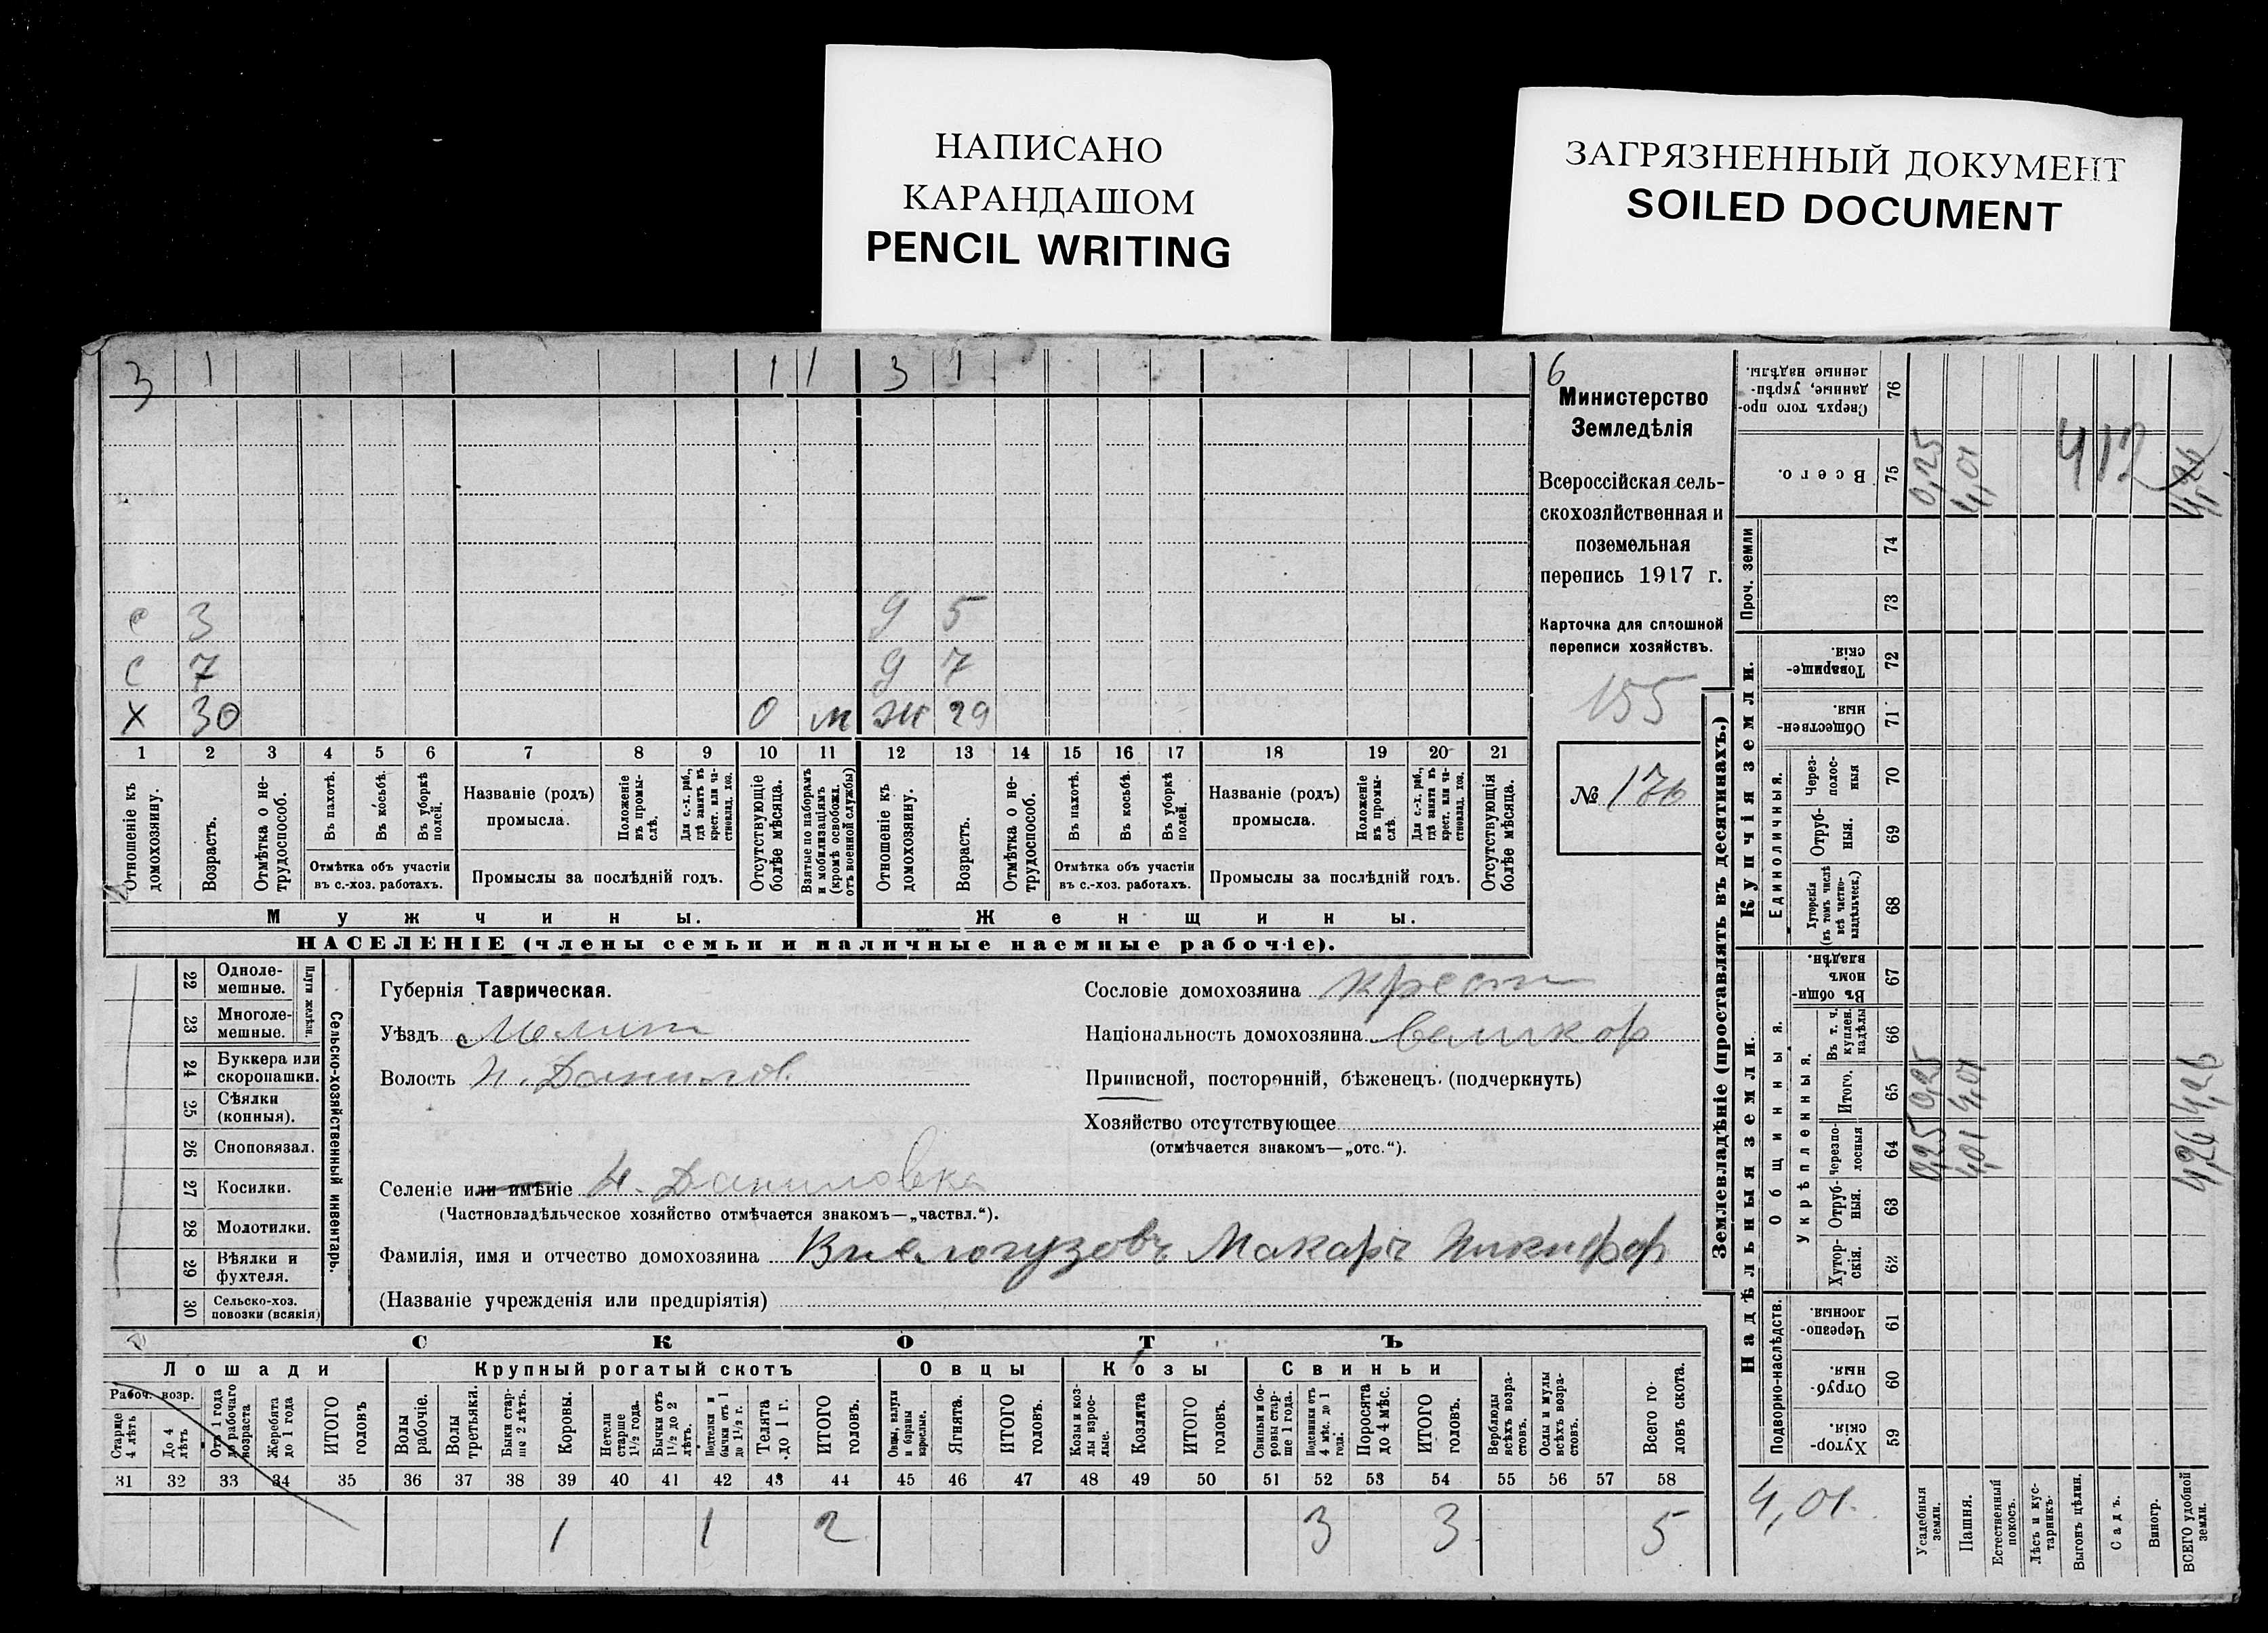 НАПИСАНО
КАРАНДАШОМ
PENCIL WRITING
ЗАГРЯЗНЕННЫЙ ДОКУМЕНТ
SOILED DOCUMENT
3 1 1 1 3 1
с 3 д 5
с 7 д 7
х 30 о м ж 29
1 2 3 4 5 6 7 8 9 10 11 12 13 14 15 16 17 18 19 20 21
Отношеніе къ домохозяину.
Возрастъ.
Отмѣтка о нетрудоспособ.
Въ пахотѣ.
Въ косьбѣ.
Въ уборкѣ полей.
Отмѣтка объ участіи
въ с.-хоз. работахъ.
Названіе (родъ)
промысла.
Положеніе въ промыслѣ.
Для с.-х. раб., гдѣ занятъ въ крест. или частновлад. хоз.
Промыслы за послѣдній годъ.
Отсутствующіе болѣе мѣсяца.
Взятые по наборамъ и мобилизаціямъ (кромѣ освобожд. отъ военной службы)
Отношеніе къ домохозяину.
Возрастъ.
Отмѣтка о нетрудоспособ.
Въ пахотѣ.
Въ косьбѣ.
Въ уборкѣ полей.
Отмѣтка объ участіи
въ с.-хоз. работахъ.
Названіе (родъ)
промысла.
Положеніе въ промыслѣ.
Для с.-х. раб., гдѣ занята въ крест. или частновлад. хоз.
Промыслы за послѣдній годъ.
Отсутствующія болѣе мѣсяца.
Мужчины.
Женщины.
НАСЕЛЕНІЕ (члены семьи и наличные наемные рабочіе).
6
Министерство
Земледѣлія
Всероссійская сель-
скохозяйственная и
поземельная
перепись 1917 г.
Карточка для сплошной
переписи хозяйствъ.
155
№ 176
22 Одноле-
мешные.
23 Многоле-
мешные.
Плуги желѣзн.
24 Буккера или
скоропашки.
25 Сѣялки
(конныя).
26 Сноповязал.
27 Косилки.
28 Молотилки.
29 Вѣялки и
фухтеля.
30 Сельско-хоз.
повозки (всякія)
Сельско-хозяйственный инвентарь.
Губернія Таврическая.
Уѣздъ Мелит
Волость Н. Данилов.
Селеніе или имѣніе Н. Даниловка
(Частновладѣльческое хозяйство отмѣчается знакомъ—„частвл.“).
Фамилія, имя и отчество домохозяина Макаръ Никифор
(Названіе учрежденія или предпріятія)
Сословіе домохозяина крест
Національность домохозяина великор
Приписной, посторонній, бѣженецъ. (подчеркнуть)
Хозяйство отсутствующее
(отмѣчается знакомъ—„отс.“).
СКОТЪ
Лошади
Крупный рогатый скотъ
Овцы
Козы
Свиньи
Рабоч. возр.
Старше 4 лѣтъ
До 4 лѣтъ
Отъ 1 года до рабочаго возраста
Жеребята до 1 года
ИТОГО головъ
Волы рабочіе.
Волы третьяки.
Быки старше 2 лѣтъ.
Коровы.
Нетели старше 1½ года.
Бычки отъ 1½ до 2 лѣтъ.
Подтелки и бычки отъ 1 до 1½ г.
Телята до 1 г.
ИТОГО головъ.
Овцы, валухи и бараны взрослые.
Ягнята.
ИТОГО головъ.
Козы и козлы взрослые.
Козлята
ИТОГО головъ.
Свиньи и боровы старше 1 года.
Подсвинки отъ 4 мѣс. до 1 года.
Поросята до 4 мѣс.
ИТОГО головъ.
Верблюды всѣхъ возрастовъ.
Ослы и мулы всѣхъ возрастовъ.
Всего головъ скота.
31 32 33 34 35 36 37 38 39 40 41 42 43 44 45 46 47 48 49 50 51 52 53 54 55 56 57 58
1 1 2 3 3 5
Землевладѣніе (проставлять въ десятинахъ.)
Купчія земли.
Надѣльныя земли.
Сверхъ того проданные, укрѣпленные надѣлы. 76
Всего. 75
Проч. земли
74
73
Товарищескія. 72
Общественныя. 71
Единоличныя.
Черезполосныя 70
Отрубныя. 69
Хуторскія (въ томъ числѣ всѣ частновладѣльческ.) 68
Общинныя.
Въ общинномъ владѣн. 67
Укрѣпленныя.
Въ т. ч. куплен. надѣлы 66
Итого. 65
Черезполосныя 64
Отрубныя. 63
Хуторскія. 62
Подворно-наслѣдств.
Черезполосныя. 61
Отрубныя. 60
Хуторскія. 59
0,25 4,01 412 4,26
0,25 4,01 4,26
0,25 4,01 4,26
4,01.
Усадебныя земли.
Пашня.
Естественный покосъ.
Лѣсъ и кустарникъ.
Выгонъ цѣлин.
Садъ.
Виногр.
ВСЕГО удобной земли.